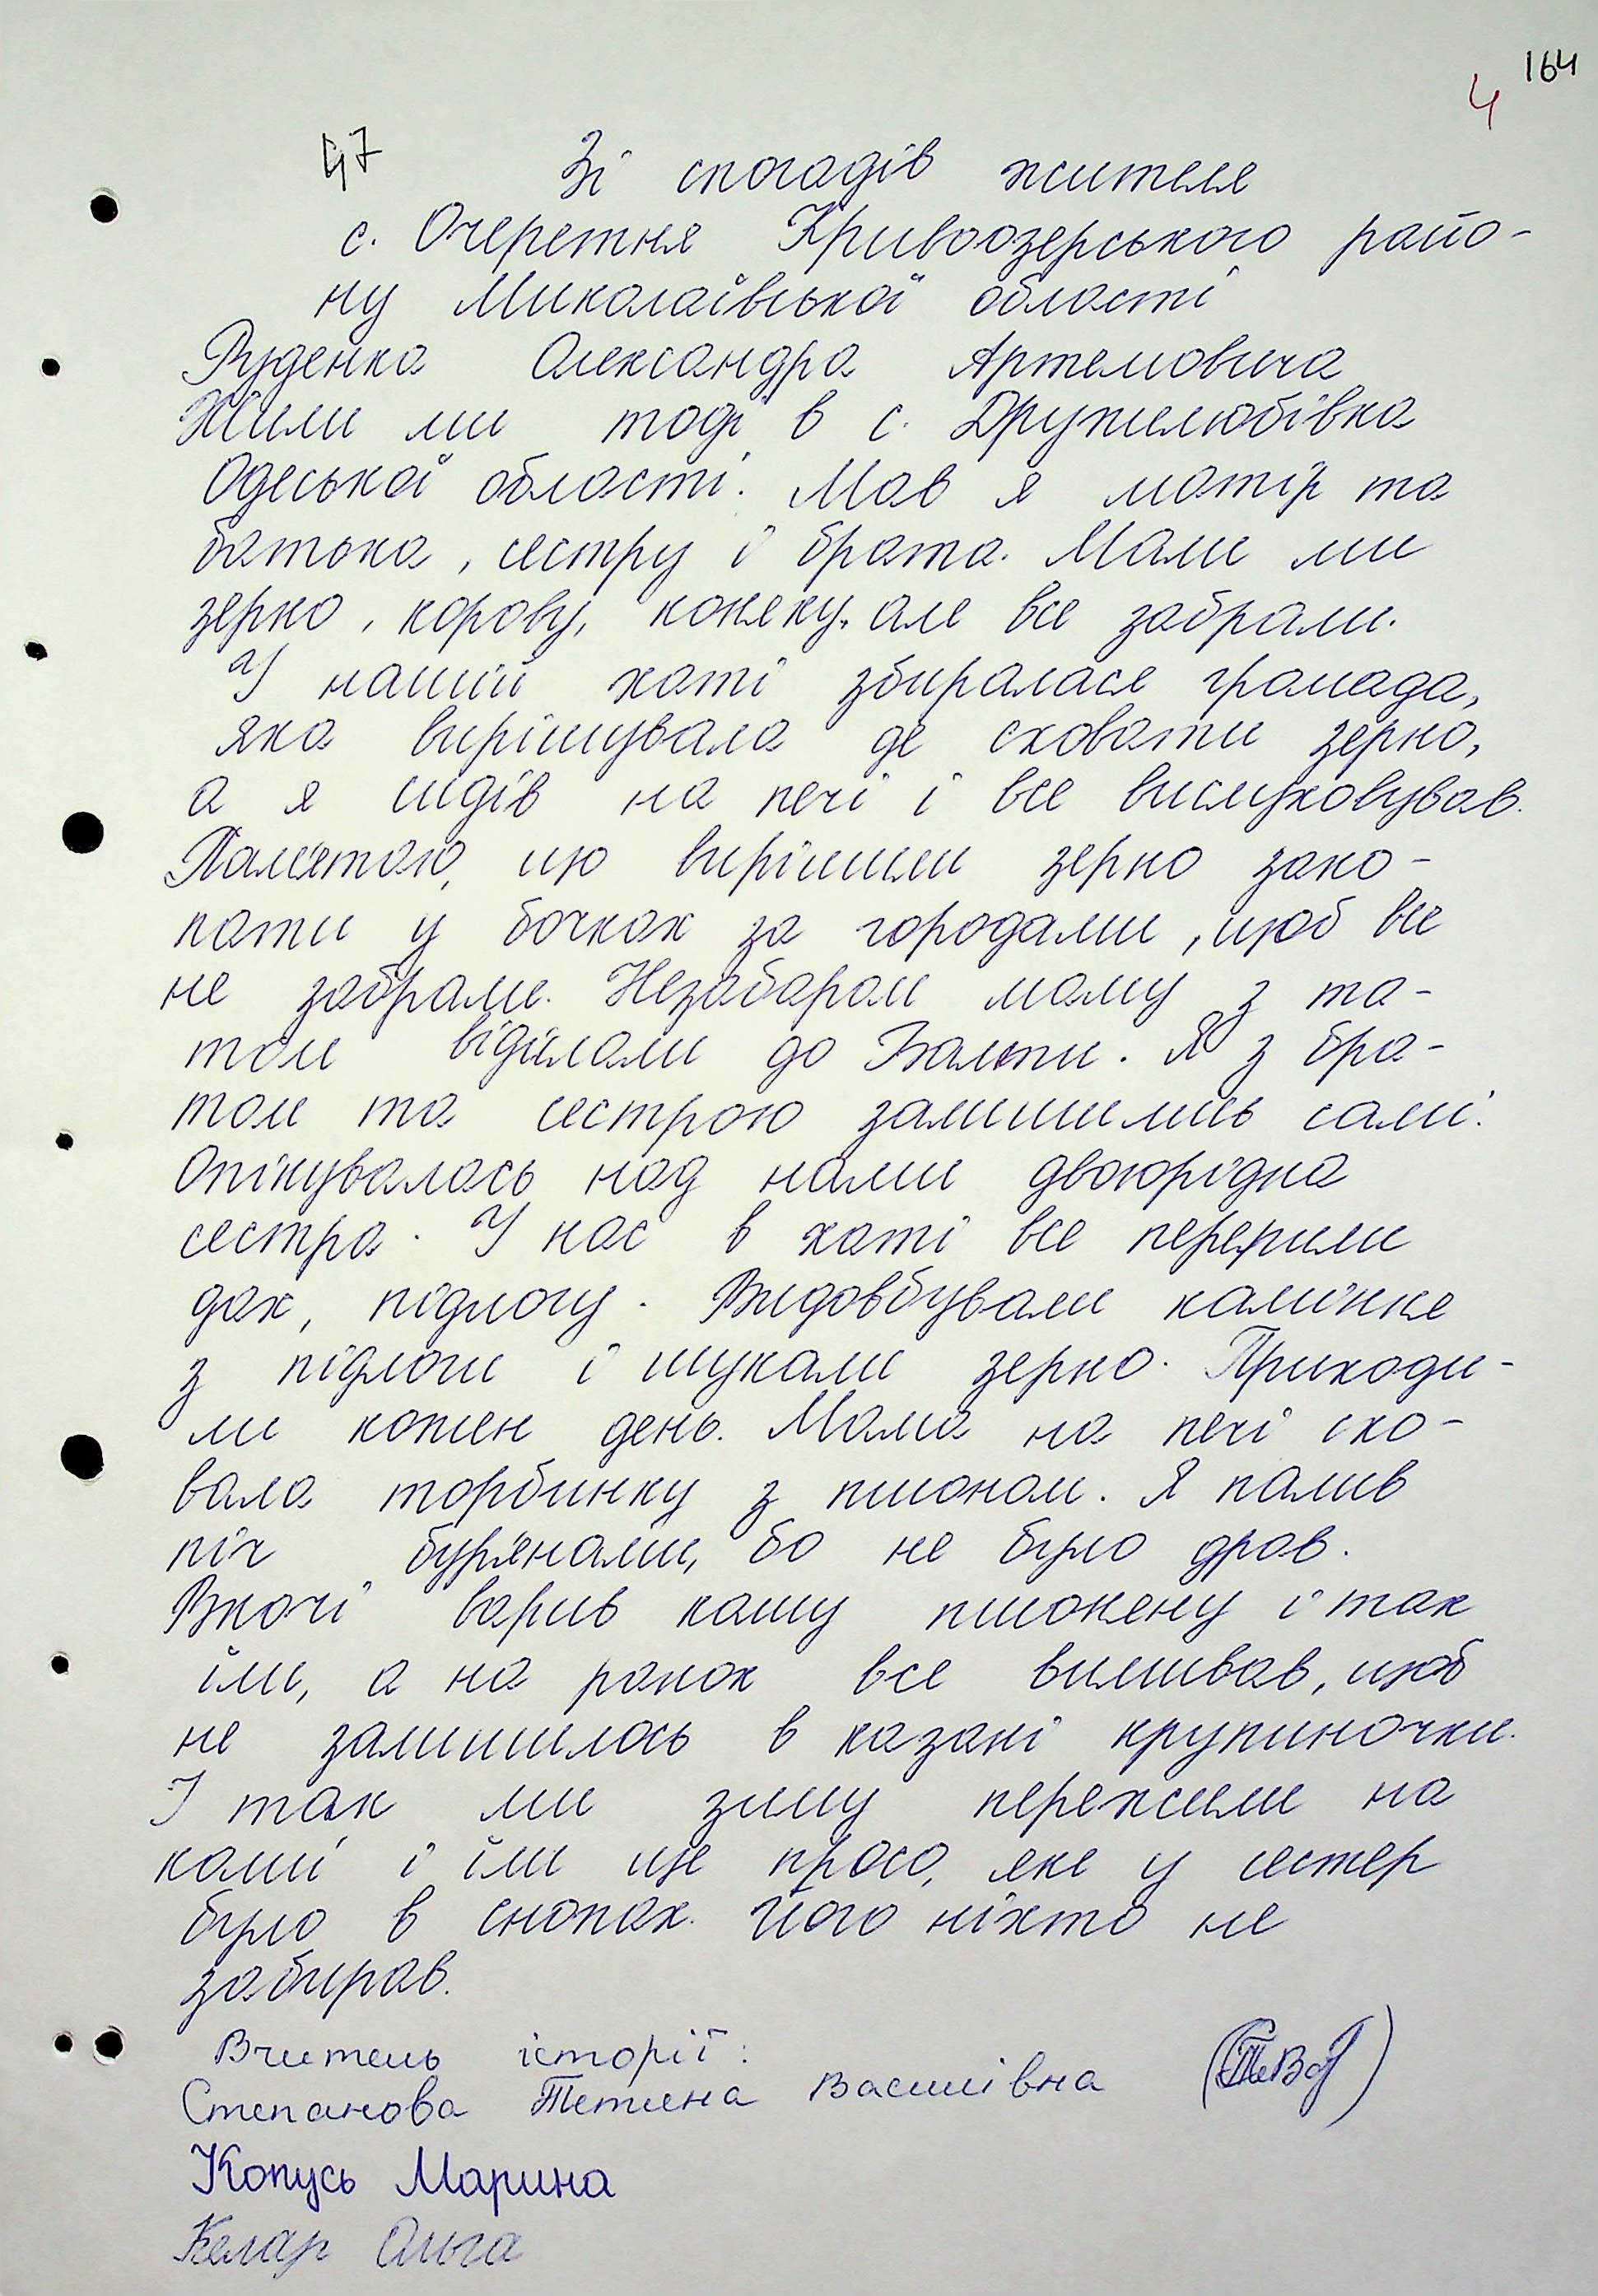 164
4
47 Зі спогадів жителя
с. Очеретня Кривоозерського райо-
ну Миколаївської області
Руденка Олександра Артемовича
Жили ми тоді в с. Дружелюбівка
Одеської області. Мав я матір та
батька, сестру і брата. Мали ми
зерно, корову, коняку, але все забрали.
У нашій хаті збиралася громада,
яка вирішувала де сховати зерно,
а я сидів на печі і все вислуховував.
Пам'ятаю, що вирішили зерно зако-
пати у бочках за городами, щоб все
не забрали. Незабаром маму з та-
том відіслали до Балти. Я з бра-
том та сестрою залишились самі.
Опікувалась над нами двоюрідна
сестра. У нас в хаті все перерили
дах, підлогу. Видовбували камінне
з підлоги і шукали зерно. Приходи-
ли кожен день. Мама на печі схо-
вала торбинку з пшоном. Я палив
піч бур'янами, бо не було дров.
Вночі варив кашу пшоняну і так
їли, а на ранок все вимивав, щоб
не залишилось в казані крупиночки.
І так ми зиму пережили на
каші і їли ще просо, яке у сестер
було в снопах. Його ніхто не
забирав.
Вчитель історії:
Степанова Тетяна Василівна
Копусь Марина
Келар Ольга